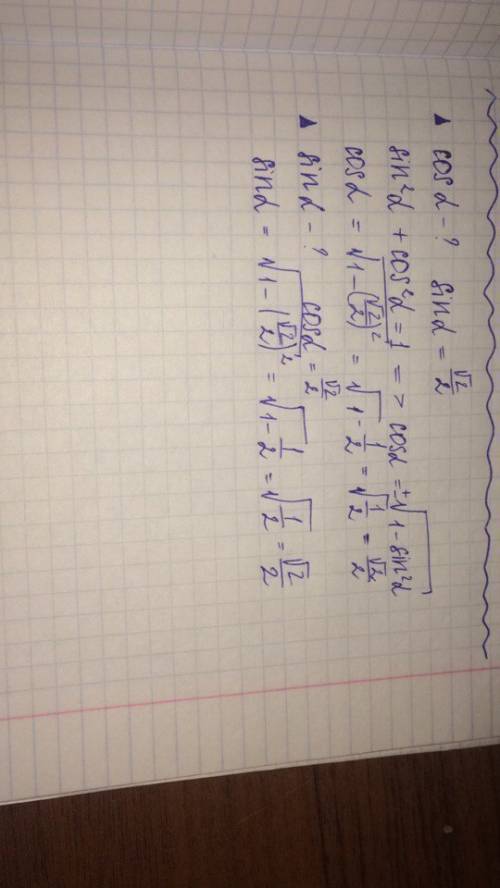 ▲ cos α - ? sin α = √2/2
sin²α + cos²α = 1 => cos α = ±√(1 - sin²α)
cos α = √(1 - (√2/2)²) = √(1 - 1/2) = √(1/2) = √2/2
▲ sin α - ? cos α = √2/2
sin α = √(1 - (√2/2)²) = √(1 - 1/2) = √(1/2) = √2/2